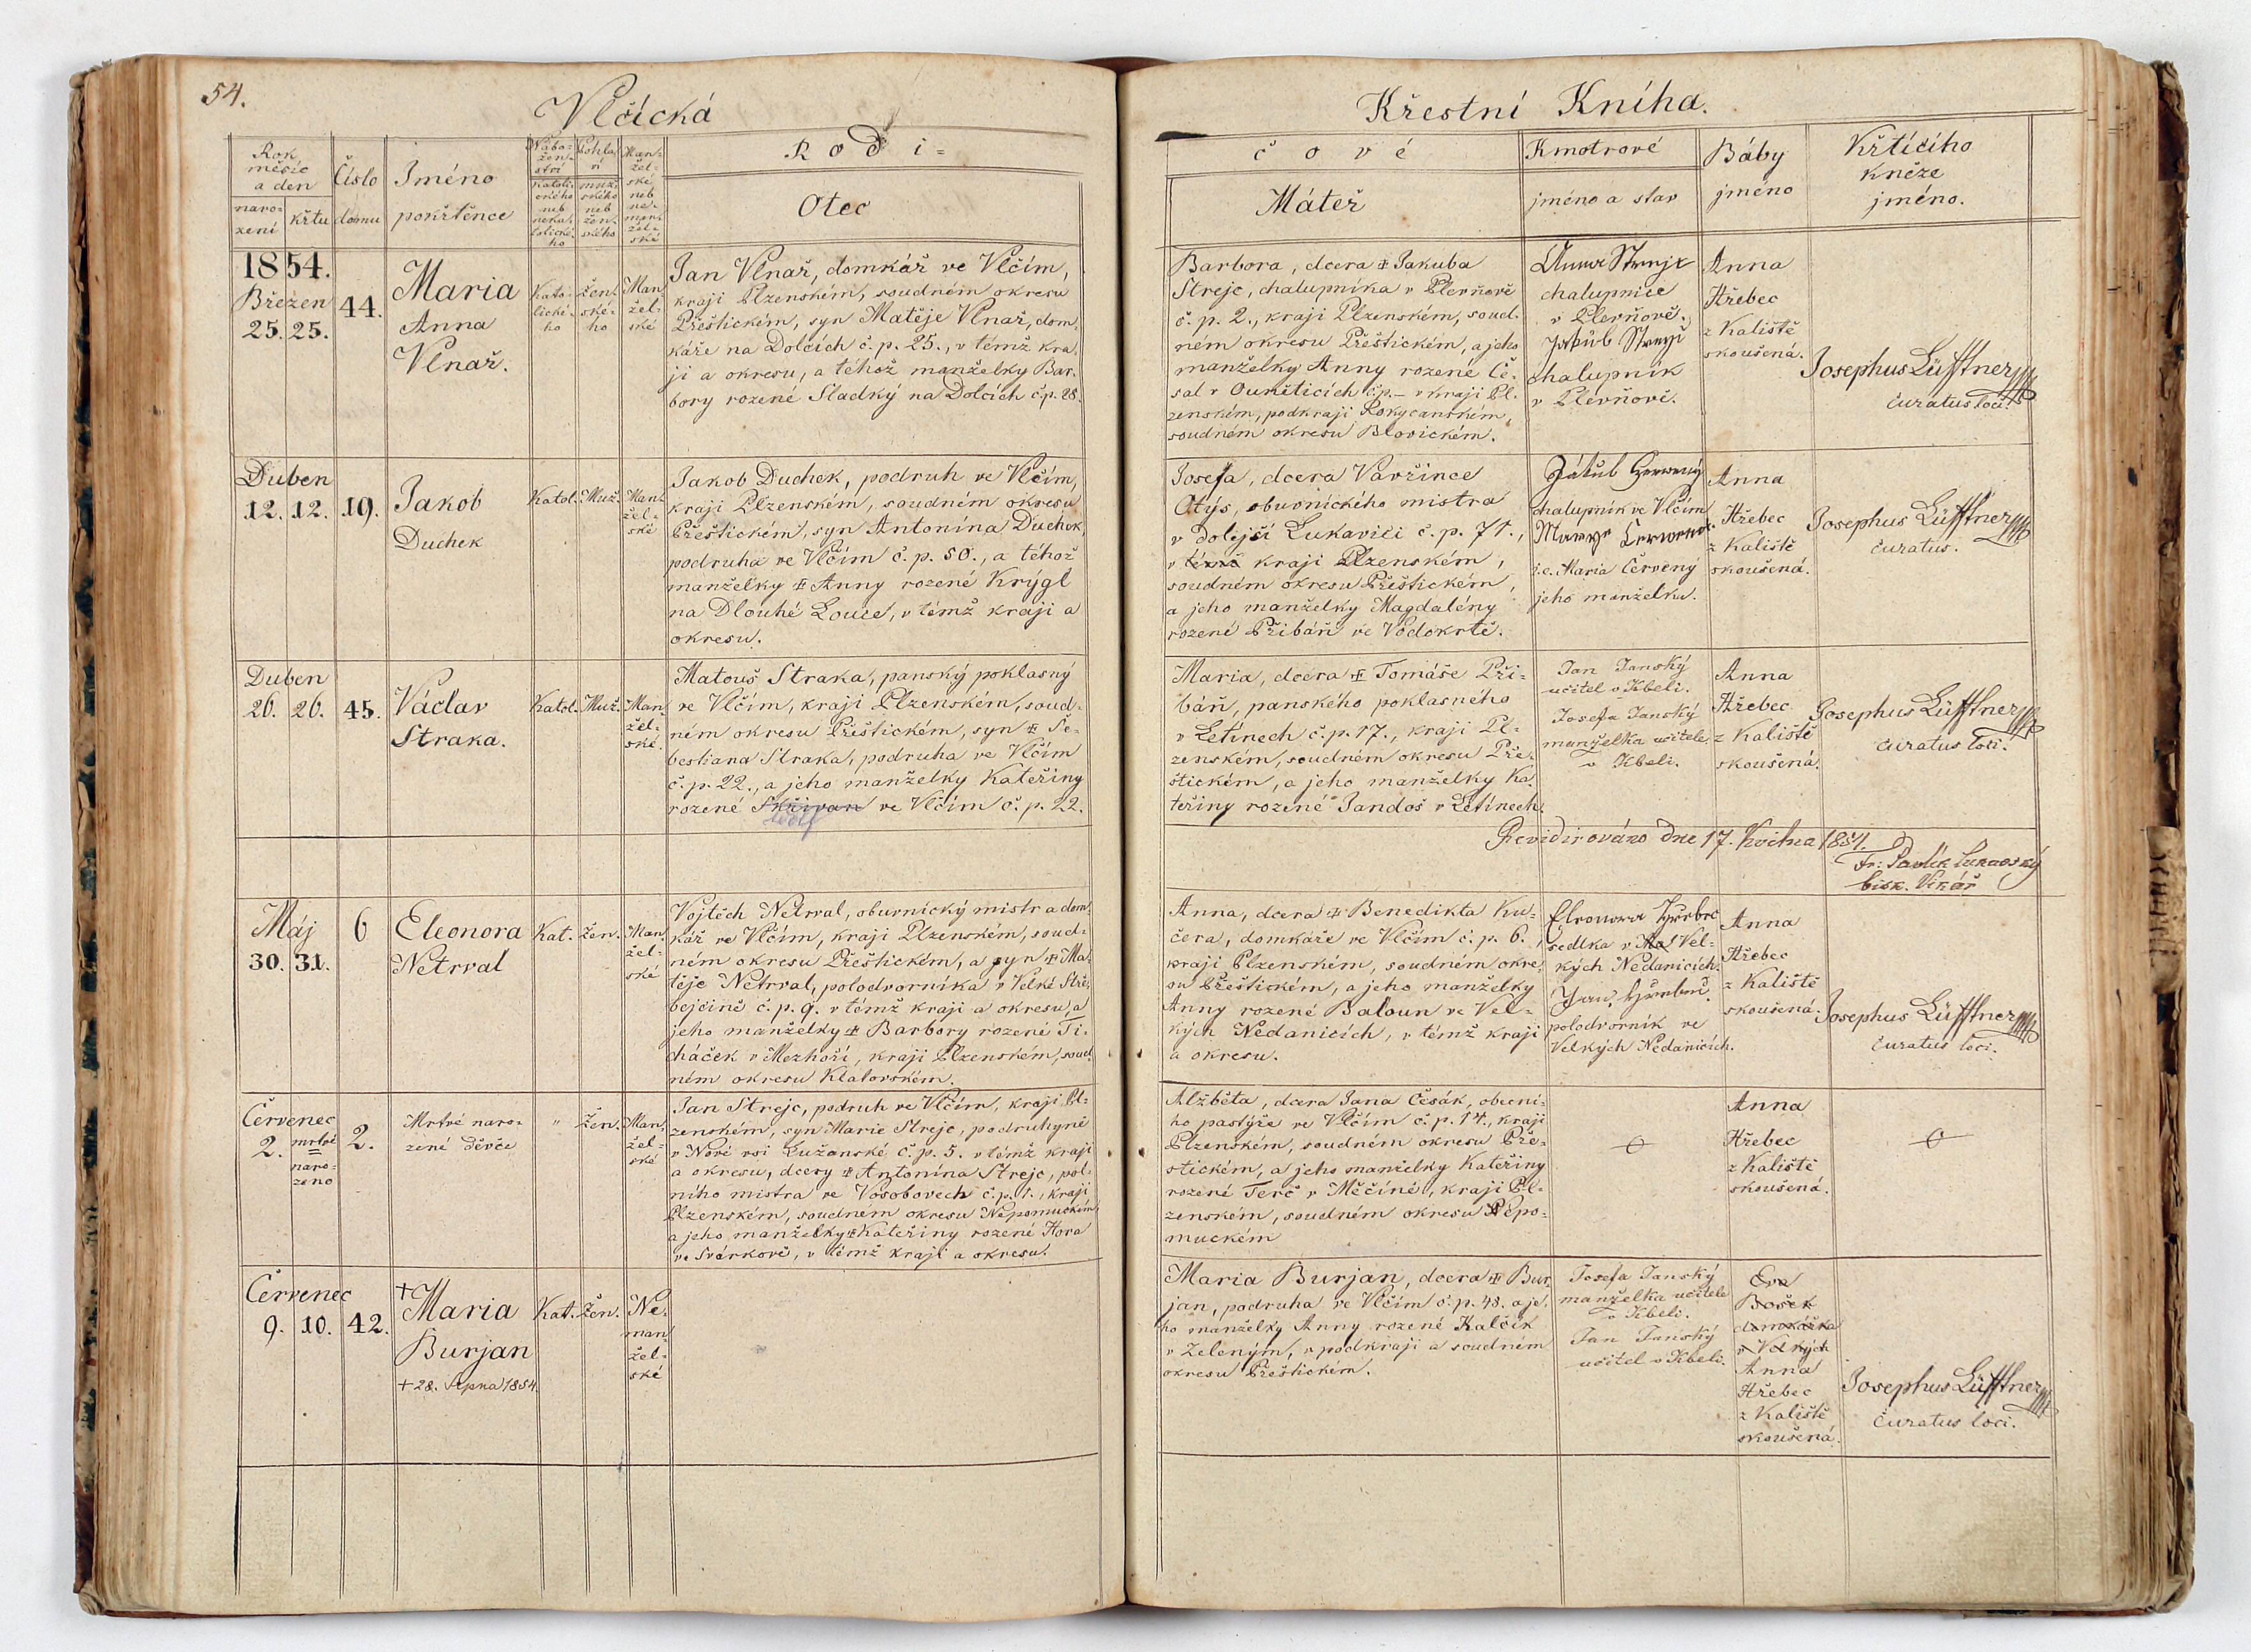 54.
Vlčická
Křestní Kniha.
Rok,
měsíc
a den
naro-
zení
křtu
Číslo
domu
Jméno
pokřtěnce
Nábo-
žen-
ství
Katoli-
ckého
neb
neka-
tolické-
ho
Pohla-
ví
muž-
ského
neb
žen-
ského
Man-
žel-
ské
neb
ne-
man-
žel-
ské
Rodi-
Otec
čové
Máteř
Kmotrové
jméno a stav
Báby
jméno
Křtícího
kněze
jméno.
1854.
Březen
25. 25.
44.
Maria
Anna
Vlnař.
Kato-
lické-
ho
žen-
ské-
ho
Man-
žel-
ské
Jan Vlnař, domkář ve Vlčím,
kraji Plzenském, soudném okresu
Přeštickém, syn Matěje Vlnař, dom-
káře na Dolcích č. p. 25., v témž kra-
ji a okresu, a téhož manželky Bar-
bory rozené Sladký na Dolcích č.p. 28.
Barbora, dcera ‡ Jakuba
Strejc, chalupníka v Plevňově
č. p. 2., kraji Plzenském, soud-
ném okresu Přeštickém, a jeho
manželky Anny rozené Če-
sal v Ouněticích č.p.– v kraji Pl-
zenském, podkraji Rokycanském,
soudném okresu Blovickém.
Anna Strejc
chalupnice
v Plevňově.
Jakub Strejc
chalupník
v Plevňově.
Anna
Hřebec
z Kaliště
skoušená.
Josephus Lüfftner
curatus loci.
Duben
12. 12.
19.
Jakob
Duchek
Katol.
Muž.
Man-
žel-
ské
Jakob Duchek, podruh ve Vlčím,
kraji Plzenském, soudném okresu
Přeštickém, syn Antonína Duchek,
podruha ve Vlčím č. p. 50., a téhož
manželky ‡ Anny rozené Krýgl
na Dlouhé Louce, v témž kraji a
okresu.
Josefa, dcera Vavřince
Otýs, obuvnického mistra
v dolejší Lukavici č. p. 71.,
v témž kraji Plzenském,
soudném okresu Přeštickém,
a jeho manželky Magdalény
rozené Přibáň ve Vodokrtě.
Jakub Červený
chalupník ve Vlčím
Marye Červená
i.e. Maria Červený
jeho manželka.
Anna
Hřebec
z Kaliště
skoušená.
Josephus Lüfftner
curatus.
Duben
26. 26.
45.
Václav
Straka.
Katol.
Muž.
Man-
žel-
ské.
Matouš Straka, panský poklasný
ve Vlčím, kraji Plzenském, soud-
ném okresu Přeštickém, syn ‡ Še-
bestiana Straka, podruha ve Vlčím
č. p. 22., a jeho manželky Kateřiny
rozené Skřivan ve Vlčím č. p. 22.
Maria, dcera ‡ Tomáše Při-
báň, panského poklasného
v Letinech č. p. 17., kraji Pl-
zenském, soudném okresu Pře-
štickém, a jeho manželky Ka-
teřiny rozené Jandoš v Letinech.
Jan Janský
učitel v Kbeli.
Josefa Janský
manželka učitele
v Kbeli.
Anna
Hřebec
z Kaliště
skoušená.
Josephus Lüfftner
curatus loci.
Revidirováno dne 17. Května 1854.
Fr: Pavlík Lukavský
bisk. Vikář
Máj
30. 31.
6
Eleonora
Netrval
Kat.
žen.
Man-
žel-
ské
Vojtěch Netrval, obuvnický mistr a dom-
kář ve Vlčím, kraji Plzenském, soud-
ném okresu Přeštickém, a syn ‡ Ma-
těje Netrval, polodvorníka v Velké Stře-
bejčině č. p. 9. v témž kraji a okresu, a
jeho manželky ‡ Barbory rozené Ti-
cháček v Mezhoří, kraji Plzenském, soud-
ném okresu Klatovském.
Anna, dcera ‡ Benedikta Ku-
čera, domkáře ve Vlčím č. p. 6.,
kraji Plzenském, soudném okre-
su Přeštickém, a jeho manželky
Anny rozené Baloun ve Vel-
kých Nedanicích, v témž kraji
a okresu.
Eleonora Hřebec
sedlka v Mal Vel-
kých Nedanicích.
Jan Hřebec
polodvorník ve
Velkých Nedanicích.
Anna
Hřebec
z Kaliště
skoušená.
Josephus Lüfftner
curatus loci.
Červenec
2.
mrtvě
naro-
zeno
2.
Mrtvé naro-
zené děvče
"
žen.
Man-
žel-
ské
Jan Strejc, podruh ve Vlčím, kraji Pl-
zenském, syn Marie Strejc, podruhyně
v Nové vsi Lužanské č. p. 5. v témž kraji
a okresu, dcery ‡ Antonína Strejc, pol-
ního mistra ve Vosobovech č. p. 1., kraji
Plzenském, soudném okresu Nepomuckém,
a jeho manželky ‡ Kateřiny rozené Hora
ve Svárkově, v témž kraji a okresu.
Alžběta, dcera Jana Česák, obecní-
ho pastýře ve Vlčím č. p. 17., kraji
Plzenském, soudném okresu Pře-
štickém, a jeho manželky Kateřiny
rozené Terč v Měčíně, kraji Pl-
zenském, soudném okresu Népo-
muckém
Anna
Hřebec
z Kaliště
skoušená.
Červenec
9. 10.
42.
+ Maria
Burjan
+ 28. srpna 1854.
Kat.
žen.
Ne-
man-
žel-
ské
Maria Burjan, dcera ‡ Bur-
jan, podruha ve Vlčím č. p. 48. a je-
ho manželky Anny rozené Kalčík
v Zeleným, v podkraji a soudném
okresu Přeštickém.
Josefa Janský
manželka učitele
v Kbeli.
Jan Janský
učitel v Kbeli.
Eva
Bošek
domkářka
v Velkých
Anna
Hřebec
z Kaliště
skoušená.
Josephus Lüfftner
curatus loci.